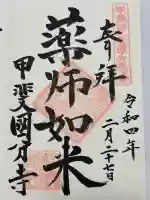 奉拝
令和四年
二月二十七日
薬師如来
甲斐國分寺